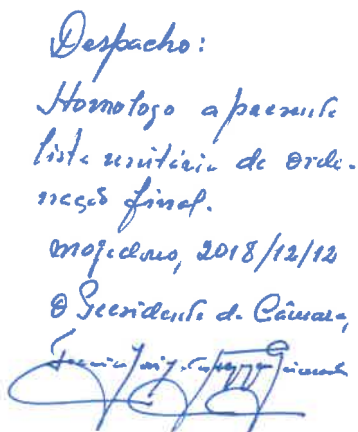 Despacho:
Homologo a presente
lista unitária de orde-
nação final.
Mogadouro, 2018/12/12
O Presidente da Câmara,